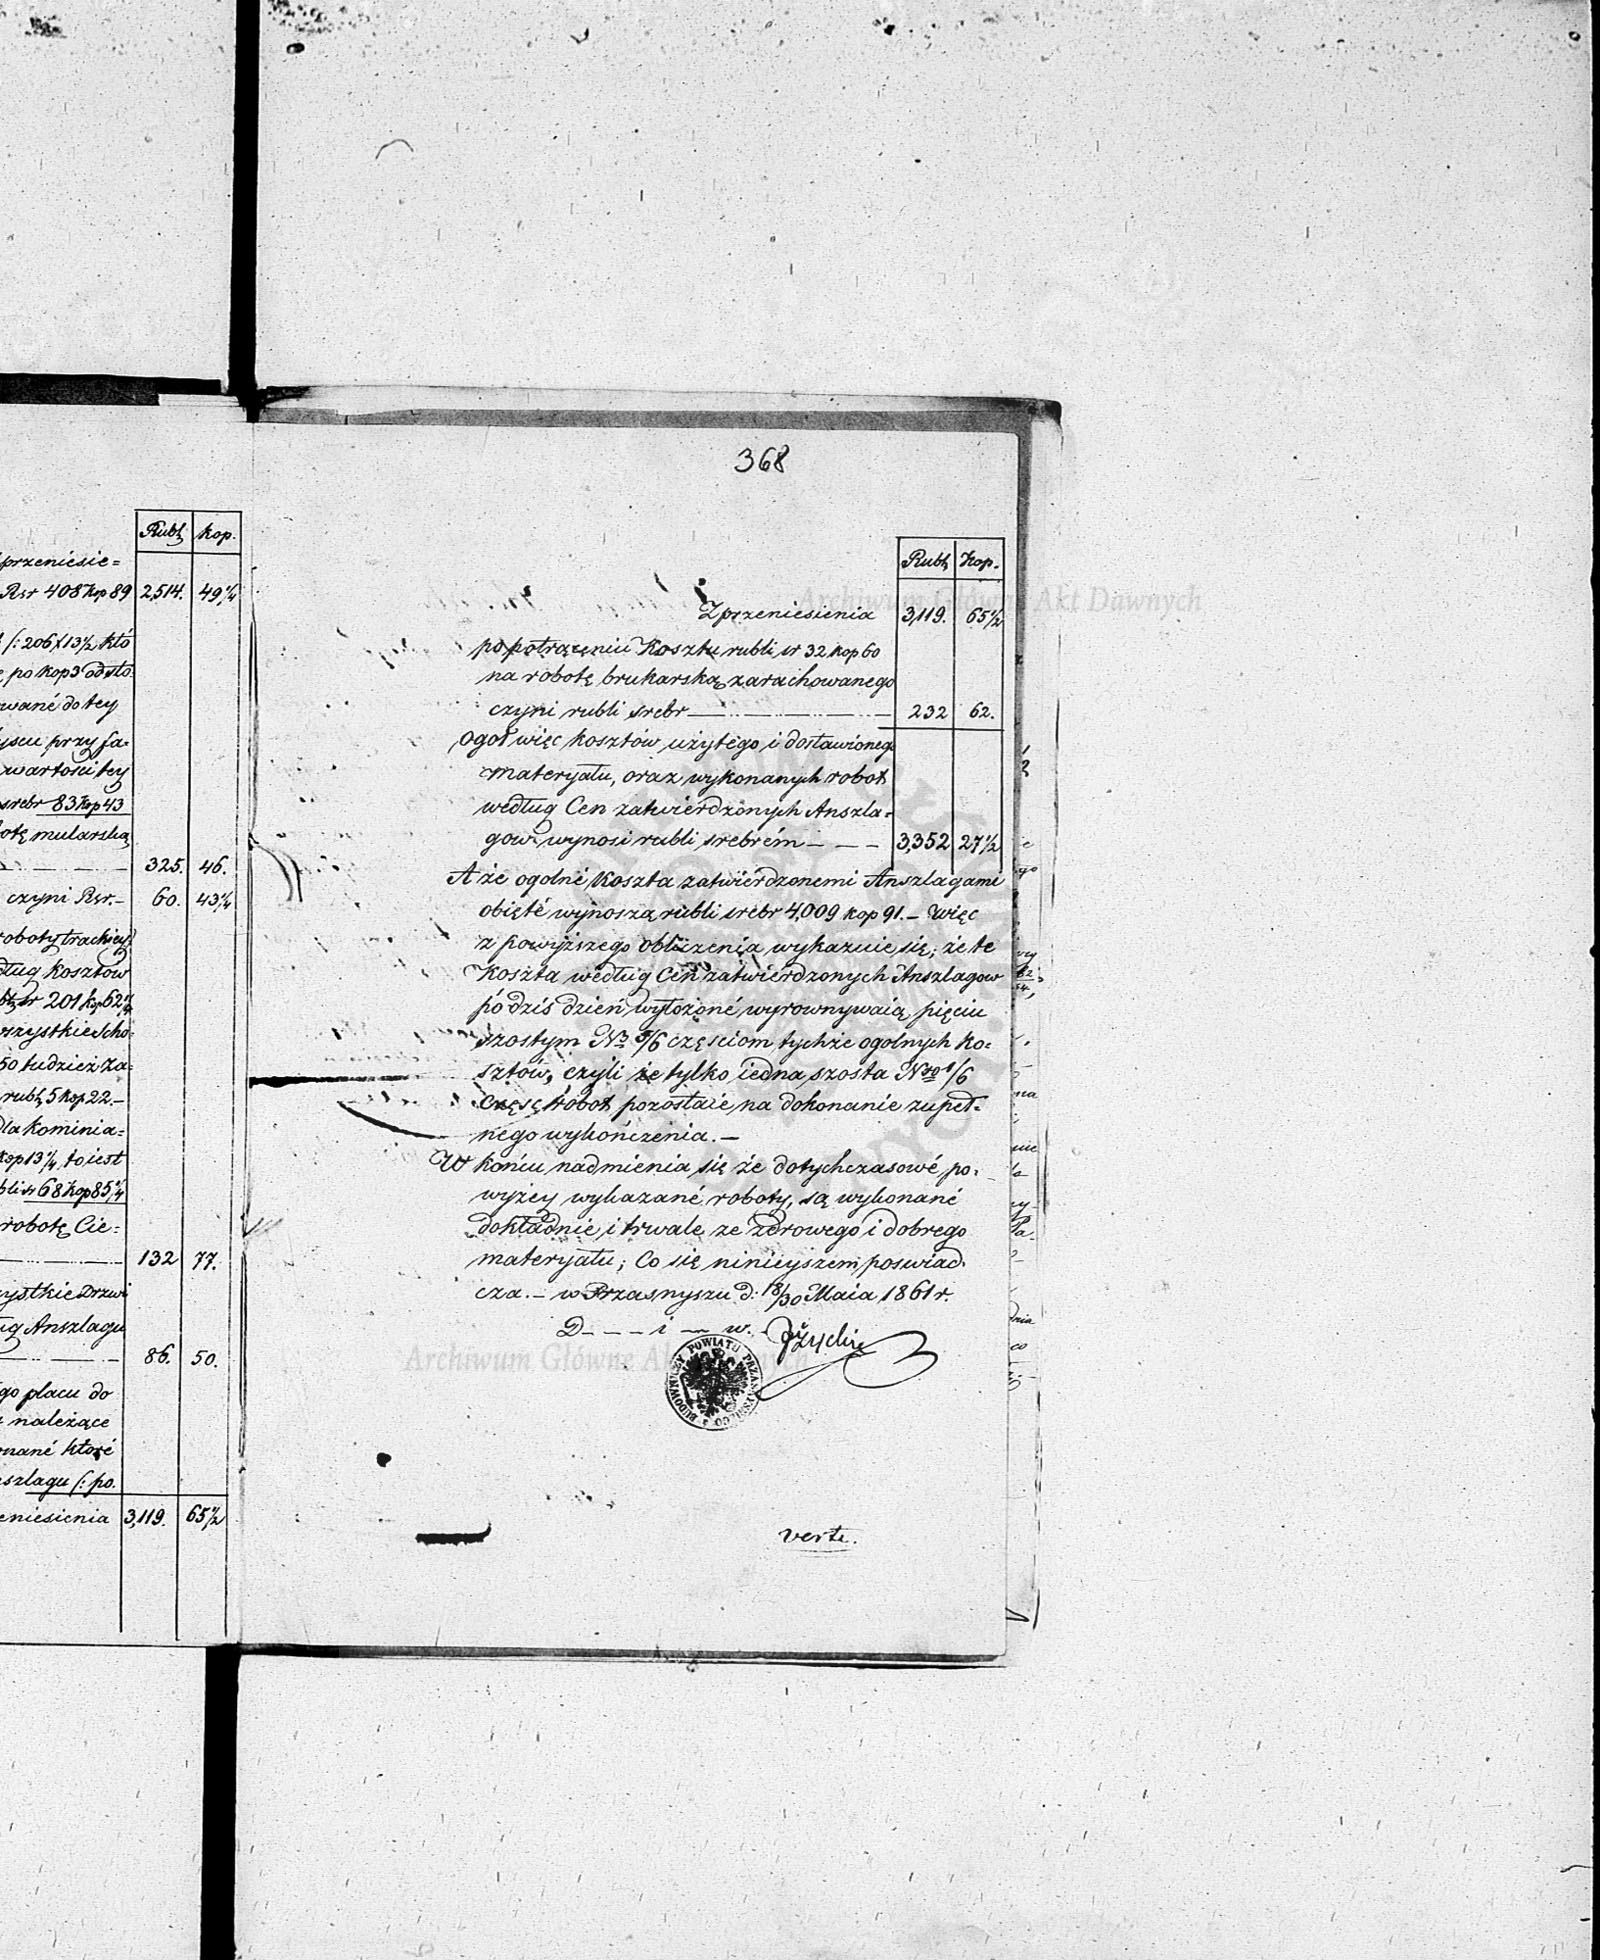 Rubl kop.
przeniesie=
Rsr 408 Kop 89 2,514. 49 1/4
(: 206/13 1/2 któ
po kop 3 od sto.
wané do tey
yscu przy fa=
wartości tey
srebr 83 Kop 43
otę mularską
325. 46.
czyni Rsr.- 60. 43 1/4
roboty trackiey
dług kosztów
sr 201 kop 62
wszystkie Scho=
50 tudzież za=
rubl 5 kop 22.-
dla kominia=
Kop 13 1/4, to iest
bli sr 68 Kop 85 1/4
robotę Cie=
132 77.
zystkie Drzwi
ug Anszlagu
86. 50.
go placu do
należące
onané któré
nszlagu (: po.
eniesienia 3,119. 65 1/2
368
Rubl Kop.
Z przeniesienia 3,119. 65 1/2
po potrąceniu Kosztu rubli sr 32 kop 60
na robotę brukarską zarachowanego
czyni rubli srebr 232 62.
Ogół więc kosztów użytego i dostawionego
materyału, oraz wykonanych robot
według Cen zatwierdzonych Anszla=
gow wynosi rubli srebrém 3,352 27 1/2
A że ogolné Koszta zatwierdzonemi Anszlagami
obięté wynoszą rubli srebr 4,009 kop 91.- więc
z powyższego obliczenia wykazuie się; że te
Koszta według Cen zatwierdzonych Anszlagow
po dziś dzień wyłożoné wyrownywaią pięciu
szostym No 5/6 częsciom tychże ogolnych Ko=
sztów, czyli że tylko iedna szosta Nro 1/6
Częsć robot pozostaié na dokonanie zupeł=
nego wykończenia.-
W końcu nadmienia się że dotychczasowé po=
wyżey wykazané roboty, są wykonané
dokładnie i trwale ze zdrowego i dobrego
materyału; Co się niniéyszem poswiad=
cza.- w Przasnyszu d. 18/30 Maia 1861 r.
D - - - i - w.
BUDOWNICZY POWIATU PRZASNYSKIEGO
verte.
Archiwum Główne Akt Dawnych
Archiwum Główne Akt Dawnych